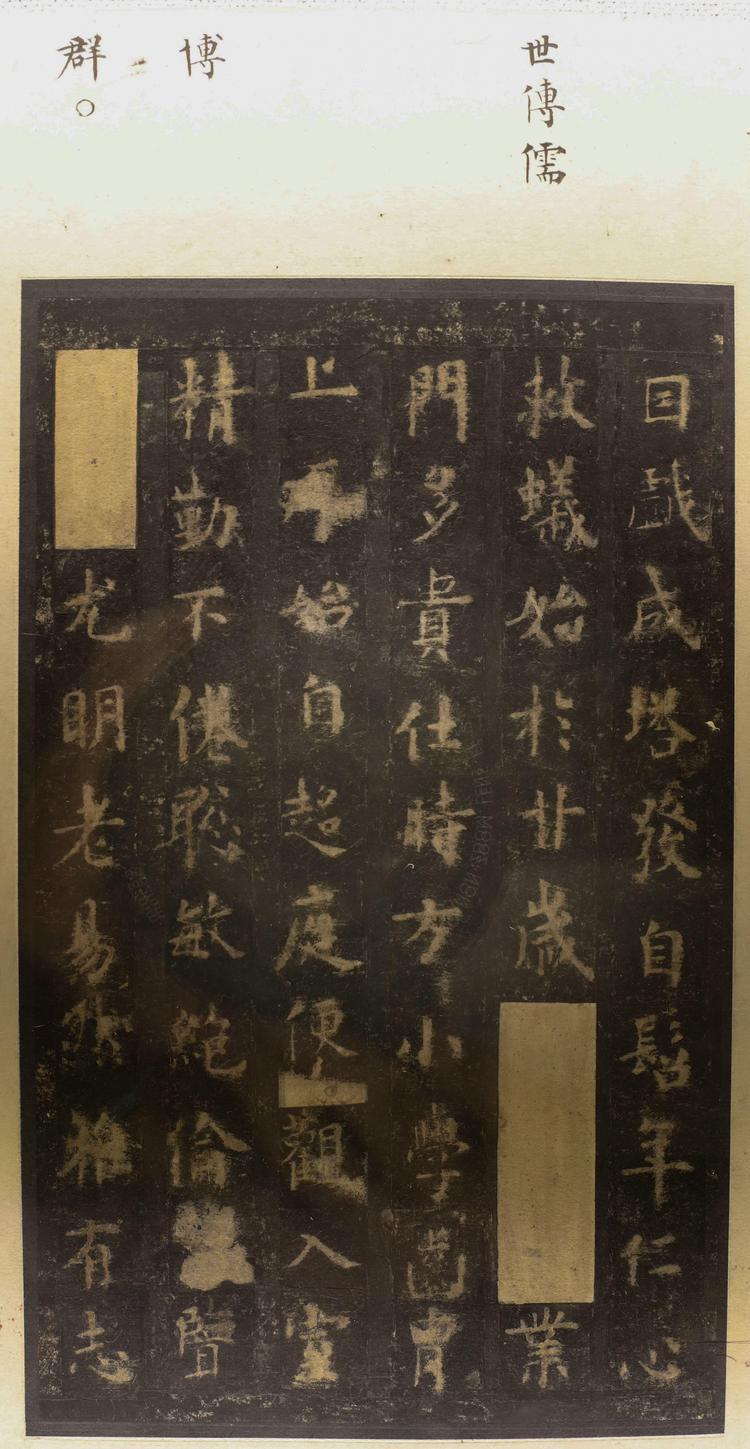 世傳儒
博
群○
因戲成塔發自髫年仁心
救蟻始於廿歲業
門多貴仕時方小學齒胄
上始自超庭便觀入室
精勤不倦聰敏絕倫覽
尤明老易然雅有志